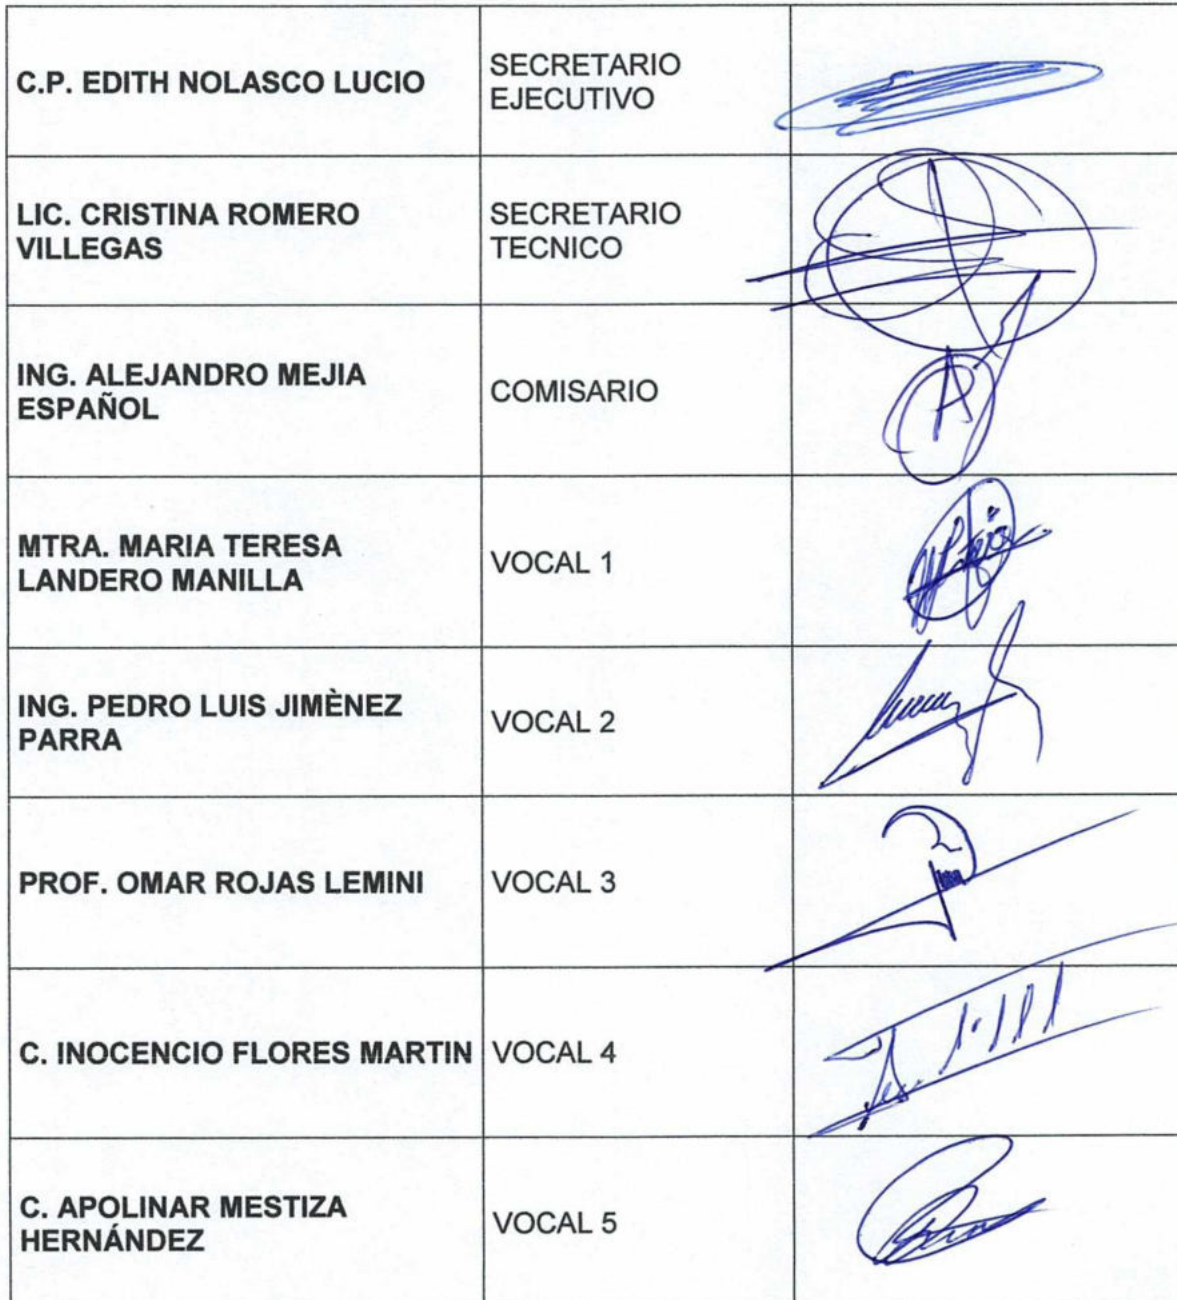 C.P. EDITH NOLASCO LUCIO
SECRETARIO
EJECUTIVO
LIC. CRISTINA ROMERO
VILLEGAS
SECRETARIO
TECNICO
ING. ALEJANDRO MEJIA
ESPAÑOL
COMISARIO
MTRA. MARIA TERESA
LANDERO MANILLA
VOCAL 1
ING. PEDRO LUIS JIMÈNEZ
PARRA
VOCAL 2
PROF. OMAR ROJAS LEMINI
VOCAL 3
C. INOCENCIO FLORES MARTIN
VOCAL 4
C. APOLINAR MESTIZA
HERNÁNDEZ
VOCAL 5